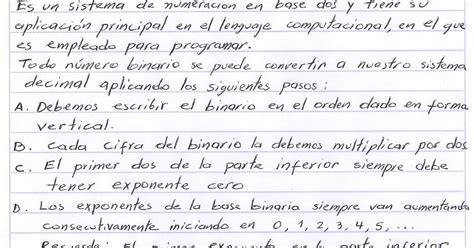 Es un sistema de numeracion en base dos y tiene su
aplicación principal en el lenguaje computacional, en el que
es empleado para programar.
Todo número binario se puede convertir a nuestro sistema
decimal aplicando los siguientes pasos:
A. Debemos escribir el binario en el orden dado en forma
vertical.
B. Cada cifra del binario la debemos multiplicar por dos
C. El primer dos de la parte inferior siempre debe
tener exponente cero
D. Los exponentes de la base binaria siempre van aumentando
consecutivamente iniciando en 0, 1, 2, 3, 4, 5, ...
Recuerda: El primer exponente en la parte inferior